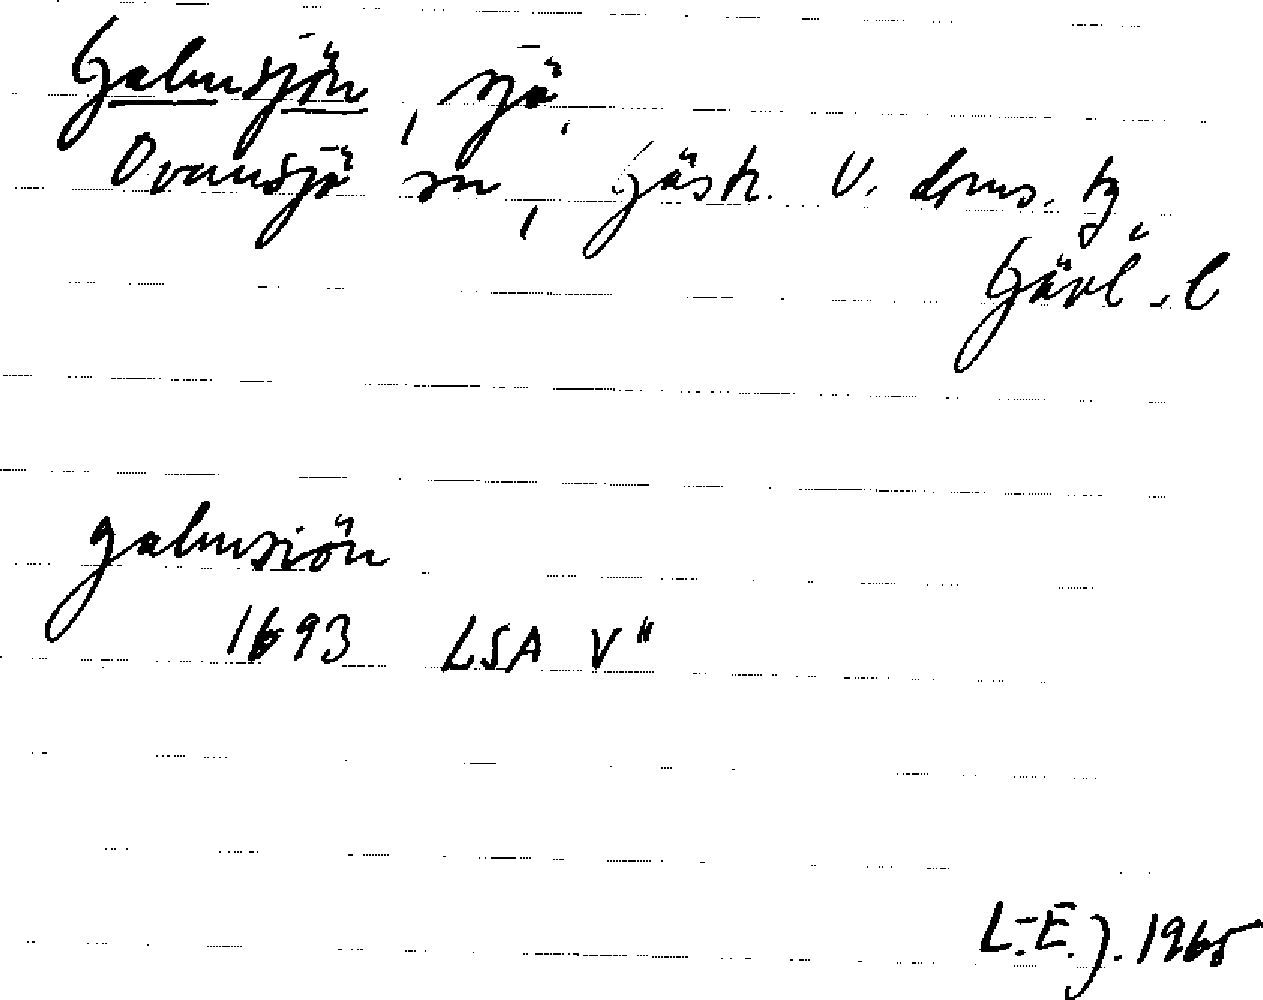 Galmsjön, sjö,
Ovansjö sn, Gästr. V. doms. tg,
Gävl. l
galmsiön
1693 LSA V"
L.-E. J. 1965